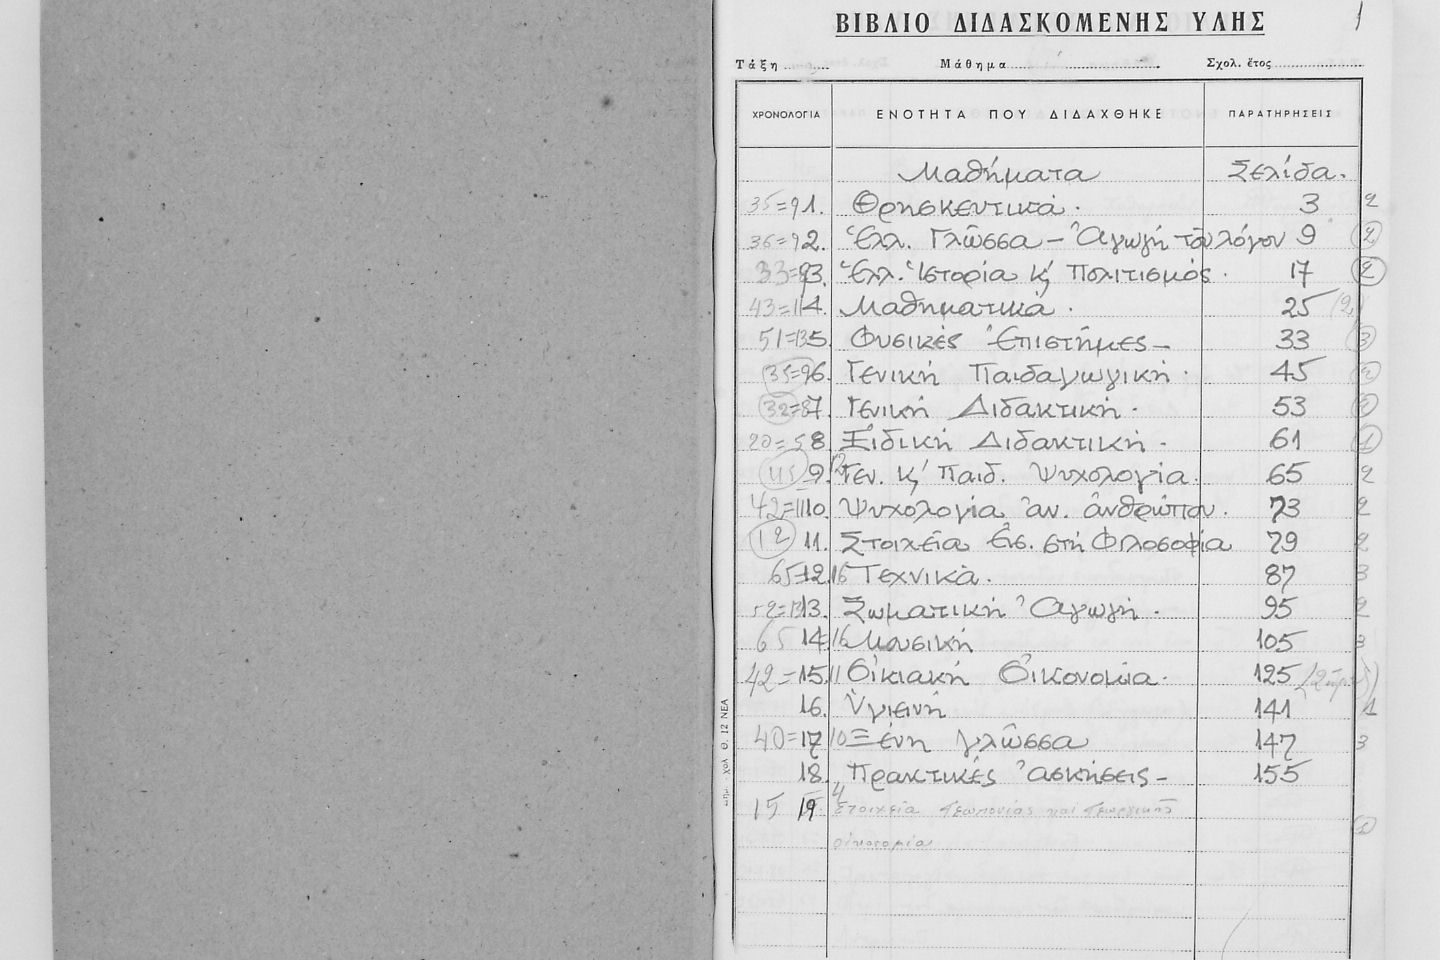 ΒΙΒΛΙΟ ΔΙΔΑΣΚΟΜΕΝΗΣ ΥΛΗΣ 1
Τάξη Μάθημα Σχολ. ἔτος
ΧΡΟΝΟΛΟΓΙΑ ΕΝΟΤΗΤΑ ΠΟΥ ΔΙΔΑΧΘΗΚΕ ΠΑΡΑΤΗΡΗΣΕΙΣ
Μαθήματα Σελίδα.
35=9 1. Θρησκευτικά. 3 2
36=9 2. Ἑλλ. Γλῶσσα – Ἀγωγή τοῦ λόγου 9 2
33= 3. Ἑλλ. Ἱστορία κ' Πολιτισμός. 17 2
43=11 4. Μαθηματικά. 25 (2)
51=13 5. Φυσικές Ἐπιστῆμες – 33 3
35=9 6. Γενική Παιδαγωγική. 45 2
32=8 7. Γενική Διδακτική. 53 2
20=5 8. Εἰδική Διδακτική. 61 1
9. Γεν. κ' Παιδ. Ψυχολογία. 65 2
42=11 10. Ψυχολογία ἀν. ἀνθρώπου. 73 2
12 11. Στοιχεῖα Εἰσ. στή Φιλοσοφία 79 2
65= 12. 16 Τεχνικά. 87 3
52=13 13. Σωματική Ἀγωγή. 95 2
65 14. 16 Μουσική 105 3
42= 15. 11 Οἰκιακή Οἰκονομία. 125
16. Ὑγιεινή 141 1
40= 17 10 Ξένη γλῶσσα 147 3
18. Πρακτικές ἀσκήσεις – 155
15 19. 4 Στοιχεῖα Γεωπονίας καί Γεωργικῆς
οἰκονομία
12 ΝΕΑ